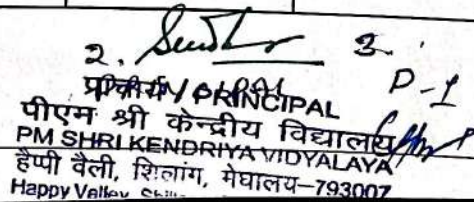 2. 3.
D-1
प्राचार्य / PRINCIPAL
पीएम श्री केन्द्रीय विद्यालय
PM SHRI KENDRIYA VIDYALAYA
हैप्पी वैली, शिलांग, मेघालय-793007
Happy Valley